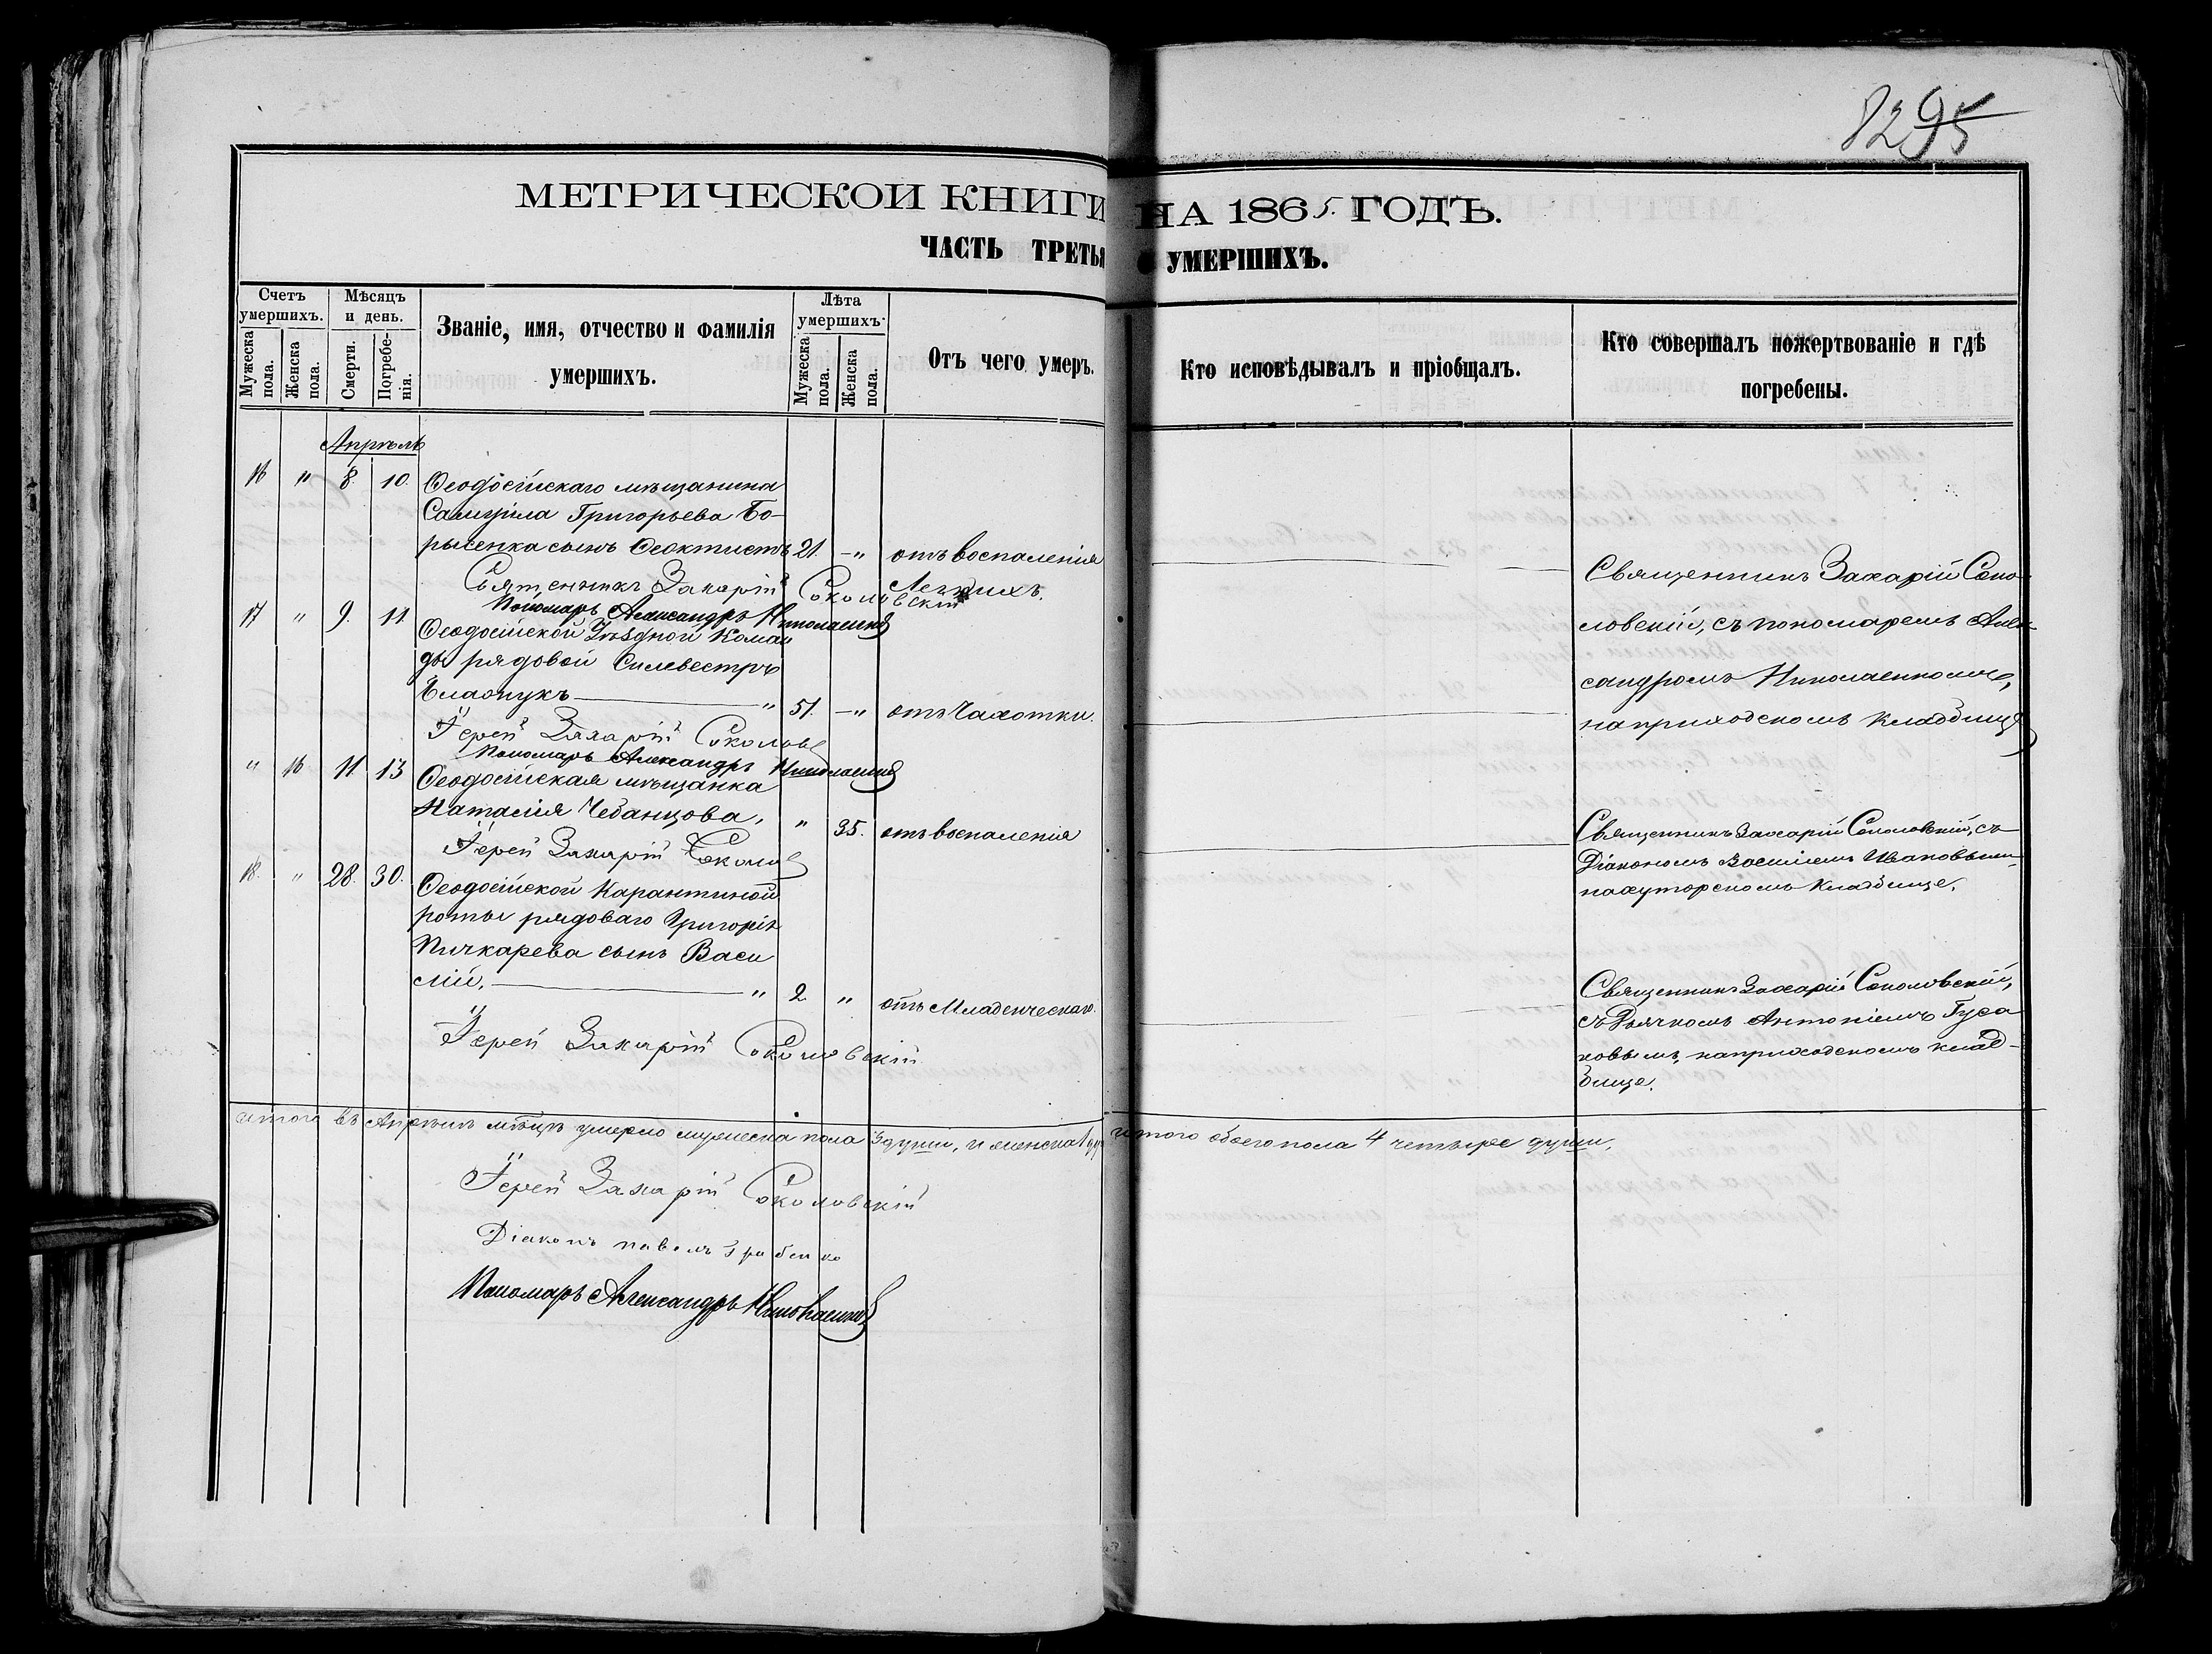 8295
МЕТРИЧЕСКОИ КНИГИ НА 1865. ГОДЪ.
ЧАСТЬ ТРЕТЬЯ УМЕРШИХЪ.
Счетъ умершихъ.
Мужеска пола.
Женска пола.
Мѣсяцъ и день.
Смерти.
Погребенія.
Званіе, имя, отчество и фамилія
умершихъ.
Лѣта умершихъ.
Мужеска пола.
Женска пола.
Отъ чего умеръ.
Кто исповѣдывалъ и пріобщалъ.
Кто совершалъ пожертвованіе и гдѣ
погребены.
Апрѣль
16 " 8. 10. Ѳеодосійскаго мѣщанина
Самуила Григорьева Бо-
рысенка сынъ Ѳеоктистъ 21. -" отъ воспаленія
Легкихъ.
Священникъ Захарій Соколовскій
Пономарь Александръ Николаенко
Священникъ Захарій Соко-
ловскій, съ пономаремъ Алек-
сандромъ Николаенкомъ,
на приходскомъ кладбищѣ
17 " 9. 11. Ѳеодосійской Уѣздной Коман
ды рядовой Силевестръ
" 51. -" отъ Чахотки.
Іерей Захарій Соколов
Пономарь Александръ Николаенко
" 16 11 13 Ѳеодосійская мѣщанка
Наталія Чебанцова, " 35. отъ воспаленія
Іерей Захарій Соколов
Священникъ Захарій Соколовскій, съ
Діакономъ Василіемъ Ивановымъ
на хуторскомъ кладбище.
18. " 28. 30. Ѳеодосійской Карантиной
роты рядоваго Григорія
Пичкарева сынъ Васи
лій. " 2 " отъ Младенческаго.
Іерей Захарій Соколовскій
Священникъ Захарій Соколовскій,
съ Дьячкомъ Антоніемъ Гуса
ковымъ, на приходскомъ клад-
бище.
итого въ Апрѣлѣ мѣсцѣ умерло мужеска пола 3 души, и женска 1 ду. итого обоего пола 4 четыре души.
Іерей Захарій Соколовскій
Діаконъ павелъ Грабенко
Пономарь Александръ Николаенко